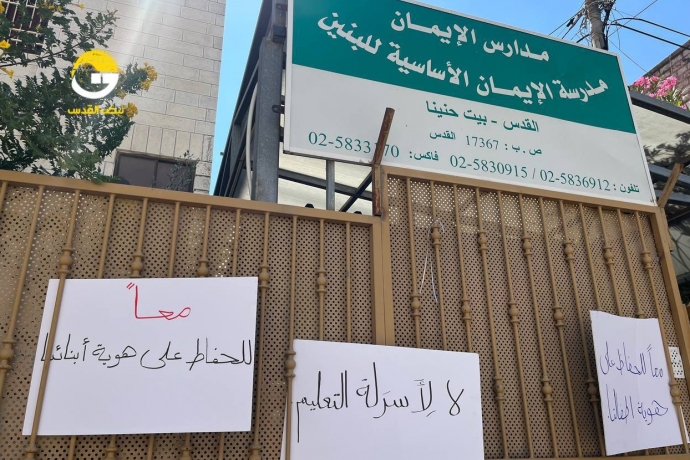 مدارس الإيمان
مدرسة الإيمان الأساسية للبنين
القدس - بيت حنينا
ص . ب : 17367 القدس
تلفون : 02-5836912 / 02-5830915 فاكس: 02-5833170
نبض القدس
معاً
للحفاظ على هوية أبنائنا
لا لِأَسرَلة التعليم
معاً للحفاظ على
هوية اطفالنا.